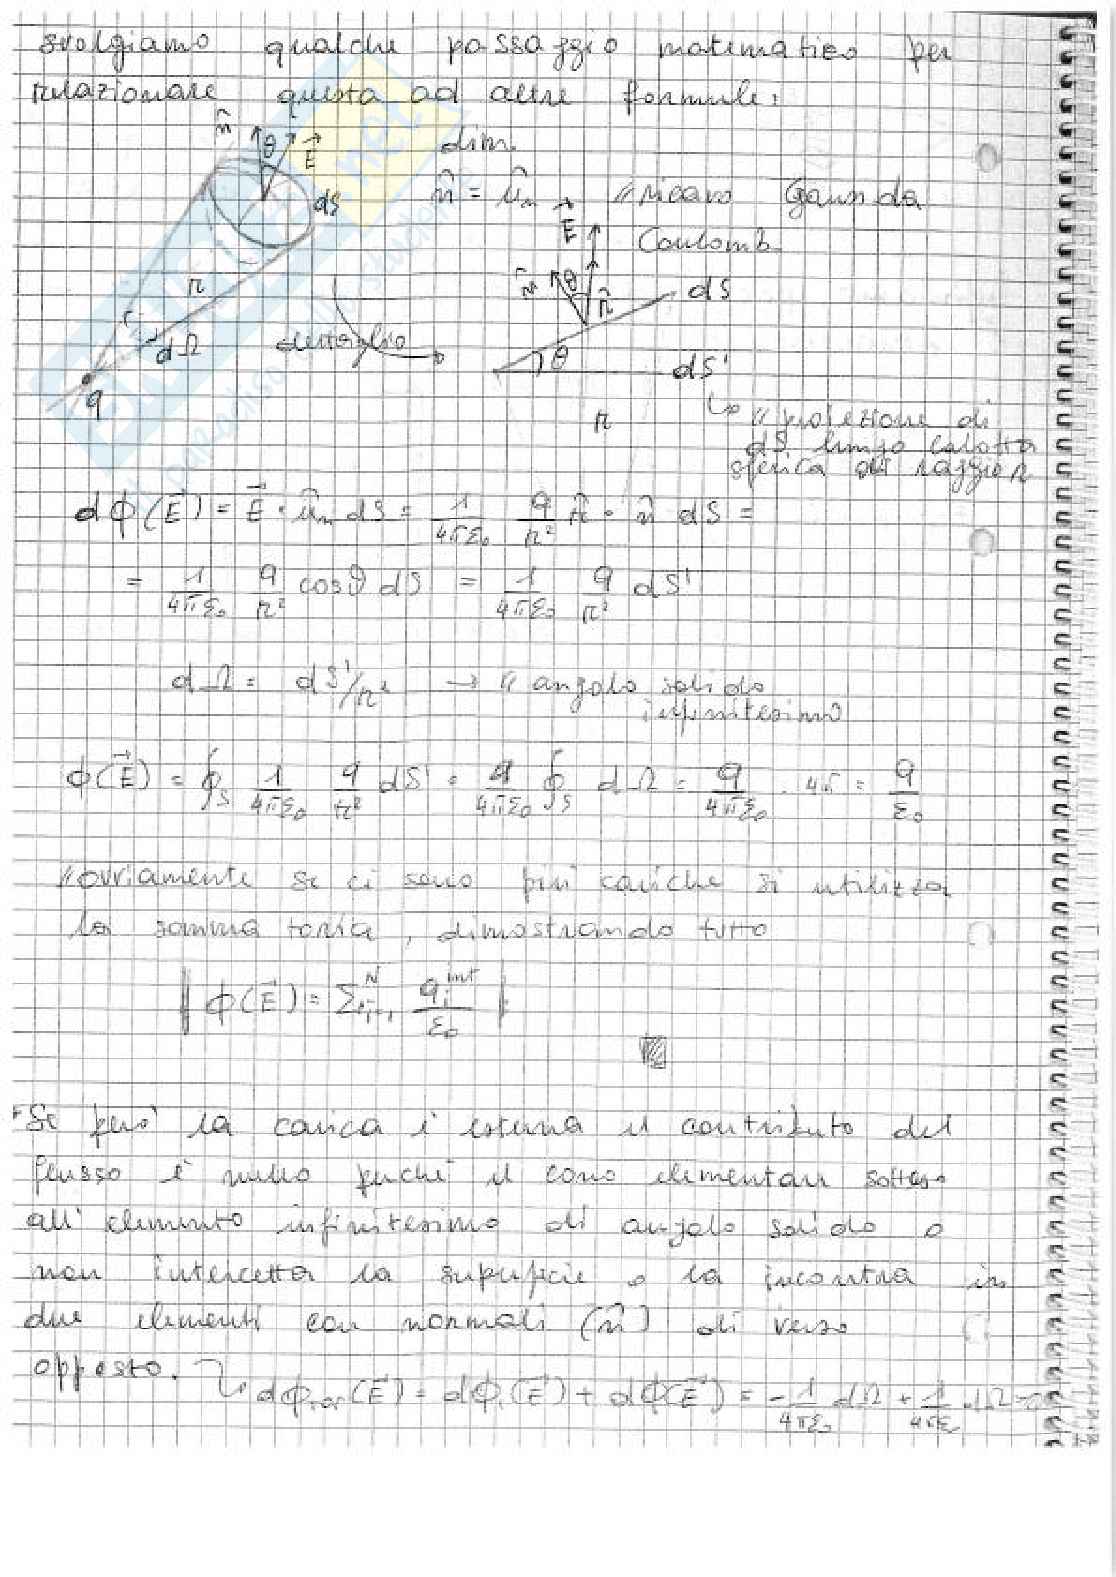 svolgiamo qualche passaggio matematico per
relazionare questa ad altre formule:
n̂ θ E⃗ dim.
dS n̂ = ûₙ // ricavo Gauss da
Coulomb
E⃗
n̂ θ r̂ dS
r
dΩ dettaglio θ dS'
q
r ↳ // proiezione di
dS lungo calotta
sferica di raggio r
dΦ(E⃗) = E⃗ · ûₙ dS = 1/4πε₀ q/r² r̂ · n̂ dS =
= 1/4πε₀ q/r² cosθ dS = 1/4πε₀ q/r² dS'
dΩ = dS'/r² → // angolo solido
infinitesimo
Φ(E⃗) = ∮s 1/4πε₀ q/r² dS' = q/4πε₀ ∮s dΩ = q/4πε₀ · 4π = q/ε₀
// ovviamente se ci sono più cariche si utilizza
la sommatoria, dimostrando tutto
‖ Φ(E⃗) = Σᴺᵢ₌₁ qᵢⁱⁿᵗ/ε₀ ‖
Se però la carica è esterna il contributo del
flusso è nullo perché il cono elementare sotteso
all'elemento infinitesimo di angolo solido o
non intercetta la superficie o la incontra in
due elementi con normali (n̂) di verso
opposto. ↳ dΦₜₒₜ(E⃗) = dΦ₁(E⃗) + dΦ(E⃗) = -1/4πε₀ dΩ + 1/4πε₀ dΩ = 0